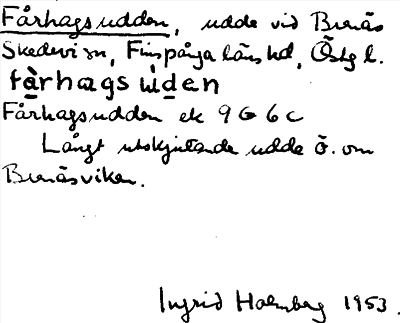 Fårhagsudden, udde vid Brenäs
Skedevi sn, Finspånga läns hd, Östg l.
fà̱rhags ùd̲en
Fårhagsudden ek 9G6c
Långt utskjutande udde ö. om
Brenäsviken.
Ingrid Holmberg 1953.